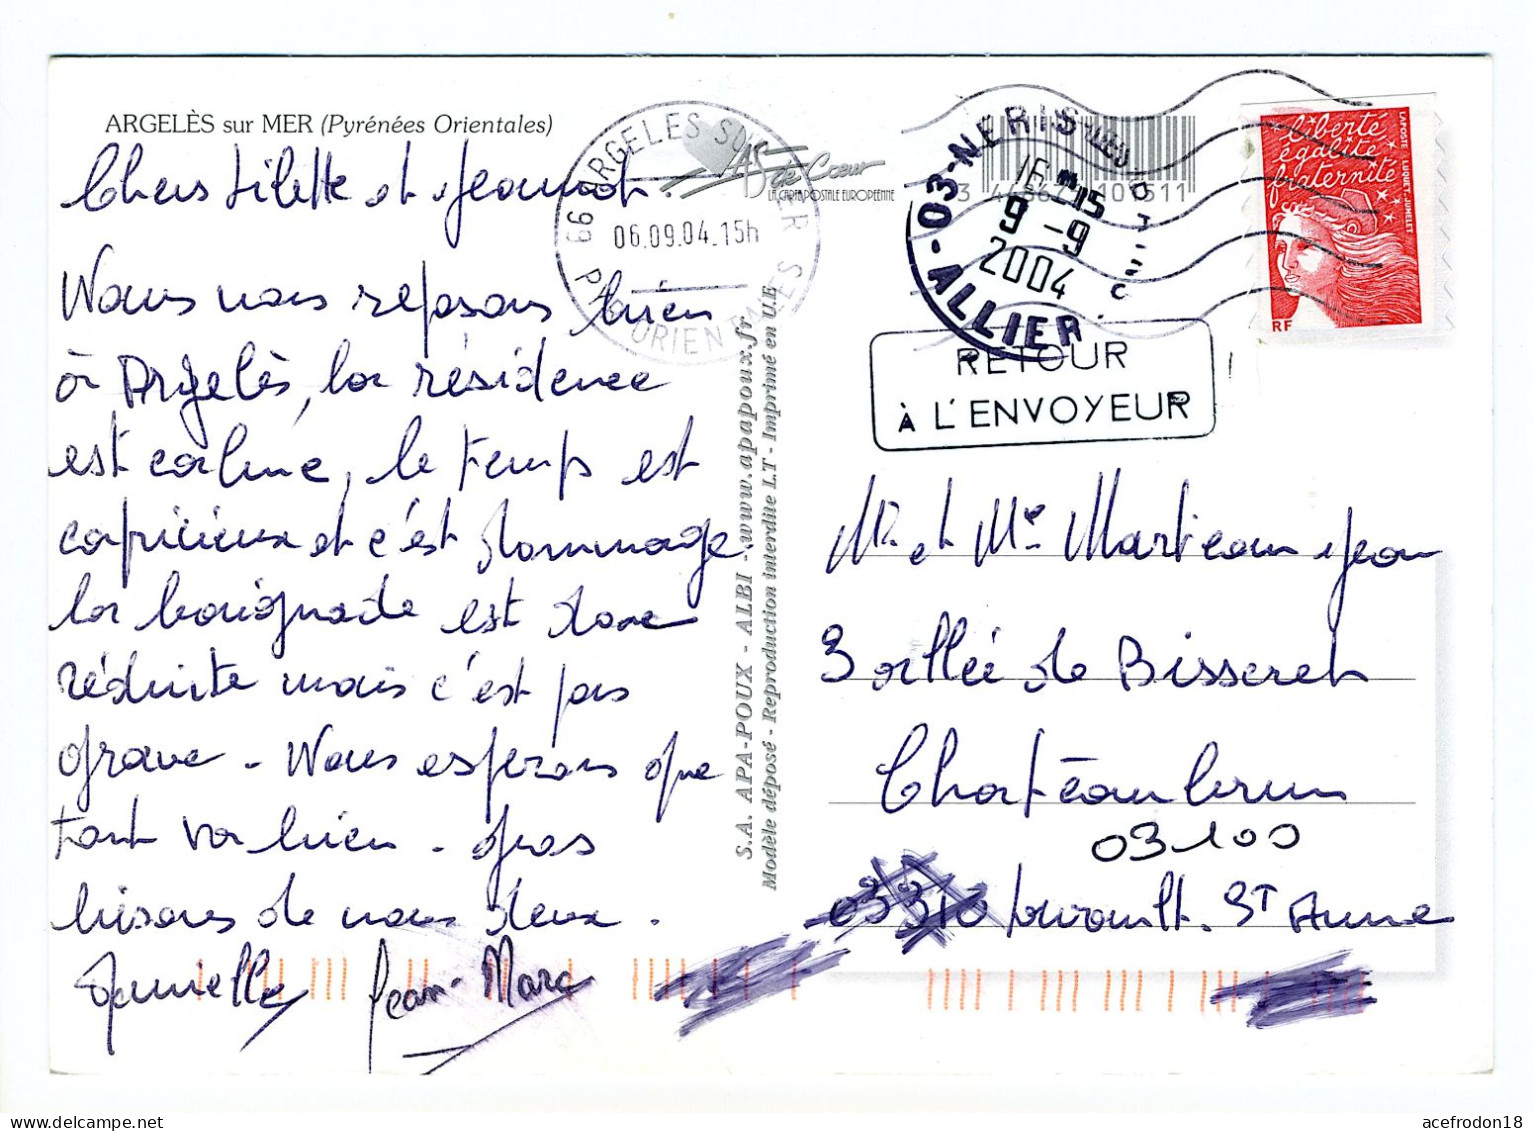 ARGELÈS sur MER (Pyrénées Orientales)
Chers Lilette et Jeannot.
Nous nous reposons bien
à Argelès, la résidence
est calme, le temps est
capricieux et c'est dommage.
la baignade est donc
réduite mais c'est pas
grave - Nous esperons que
tout va bien - gros
bisous de nous deux.
Danielle Jean-Marc
66 ARGELES SUR MER
06.09.04.15h
PYR ORIENTALES
As de Cœur
LA CARTE POSTALE EUROPÉENNE
S.A. APA-POUX - ALBI - www.apapoux.fr
Modèle déposé - Reproduction interdite L.T - Imprimé en U.E.
03-NERIS-LES-BAINS
16 H 15
9 -9
2004
ALLIER
liberté
égalité
fraternité
LA POSTE LUQUET-JUMELET
RF
RETOUR
À L'ENVOYEUR
Mr et Me Marteau Jean
3 allée de Bisseret
Chateaubrun
03100
03310 Lavault. ST Anne
acefrodon18